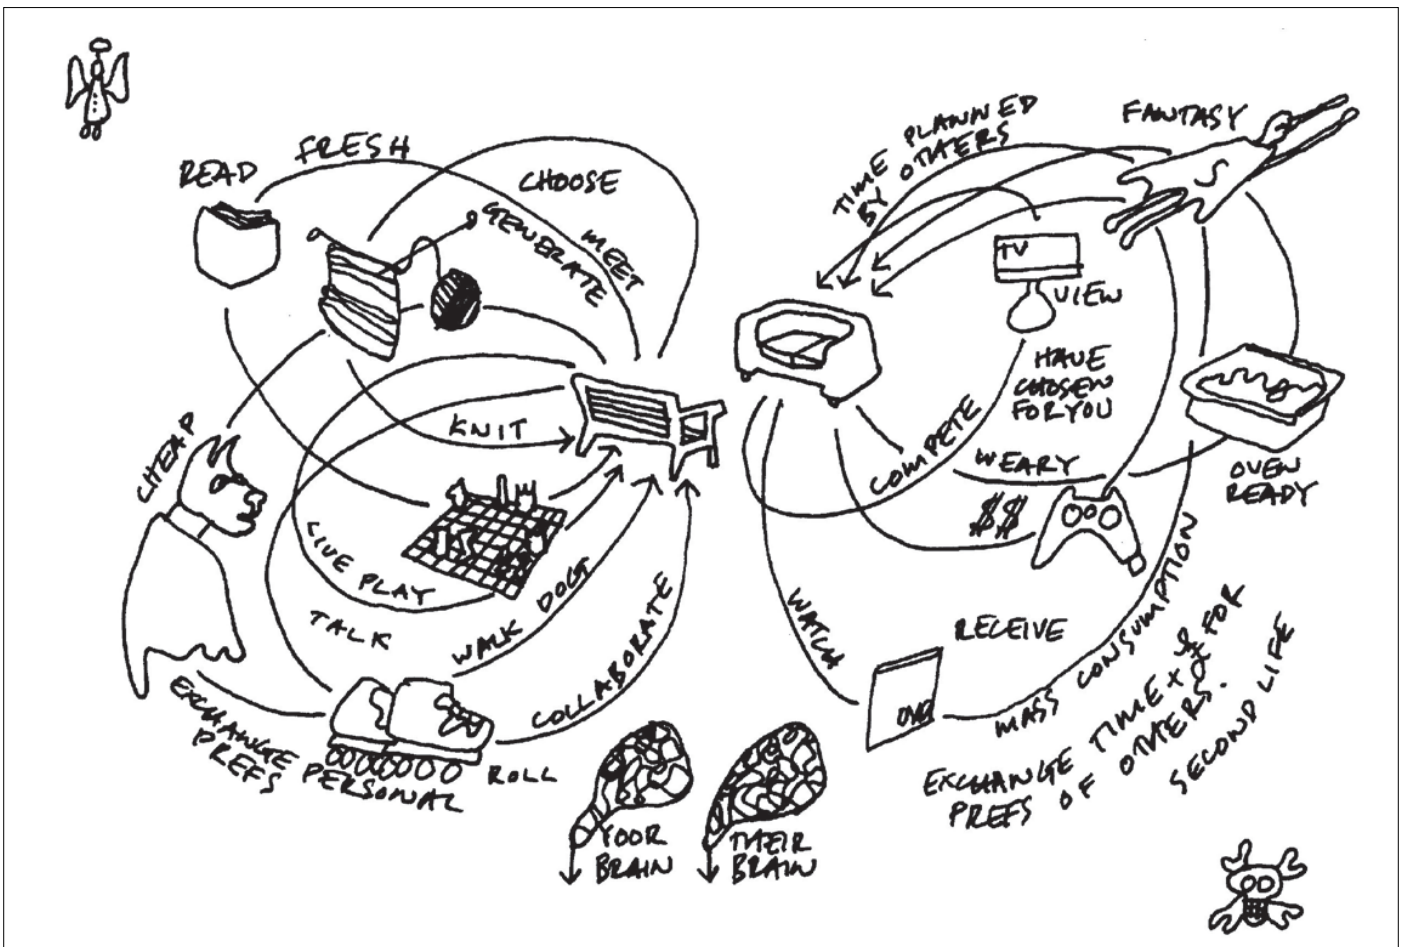 READ
FRESH
CHOOSE
GENERATE
MEET
KNIT
CHEAP
LIVE PLAY
TALK
WALK DOG
COLLABORATE
EXCHANGE
PREFS
PERSONAL
ROLL
YOOR
BRAIN
THEIR
BRAIN
TIME PLANNED
BY OTHERS
FANTASY
S
TV
VIEW
HAVE
CHOSEN
FOR YOU
COMPETE
WEARY
$$
OVEN
READY
WATCH
RECEIVE
DVD
MASS CONSUMPTION
EXCHANGE TIME + $ FOR
PREFS OF OTHERS.
SECOND LIFE